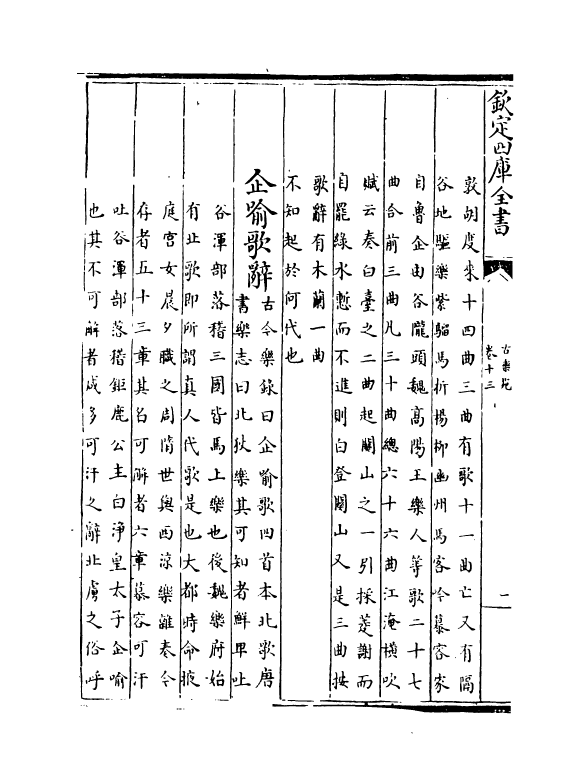 欽定四庫全書
古樂苑
卷十三
一
敦胡度來十四曲三曲有歌十一曲亡又有隔
谷地驅樂紫騮馬折楊柳幽州馬客吟慕容家
自魯企由谷隴頭魏高陽王樂人等歌二十七
曲合前三曲凡三十曲總六十六曲江淹横吹
賦云奏白臺之二曲起關山之一引採菱謝而
自罷緑水慙而不進則白登關山又是三曲按
歌辭有木蘭一曲
不知起於何代也
企喻歌辭
古今樂錄曰企喻歌四首本北歌唐
書樂志曰北狄樂其可知者鮮卑吐
谷渾部落稽三國皆馬上樂也後魏樂府始
有北歌即所謂真人代歌是也大都時命掖
庭宫女晨夕職之周隋世與西涼樂雜奏今
存者五十三章其名可解者六章慕容可汗
吐谷渾部落稽鉅鹿公主白浄皇太子企喻
也其不可解者咸多可汗之辭北虜之俗呼